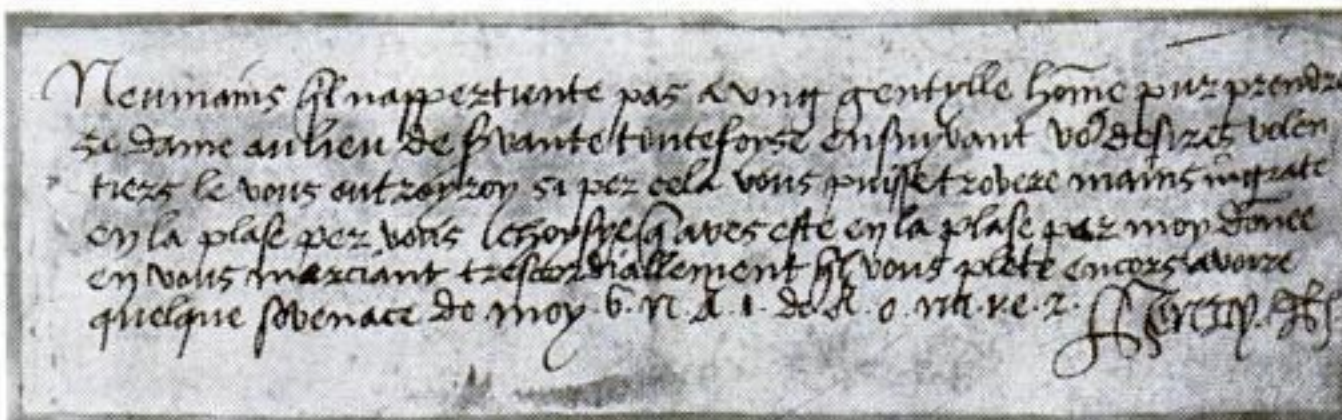 Neumains q̃l nappertiente pas a ung gentylle home pur prendr
sa dame au lieu de s̃vante toutefoyse ensuyvant vo desires volen
tiers le vous outroyroy si per cela vous puisse trovere mains ingrate
en la plase per vous choysye q̃ aves este en la plase par moy donee
en vous marciant trescordiallement q̃l vous plete encors avoire
quelque sovenace de moy . 6 . n . A . 1 . de A . o . na . v . e . z .
Henry